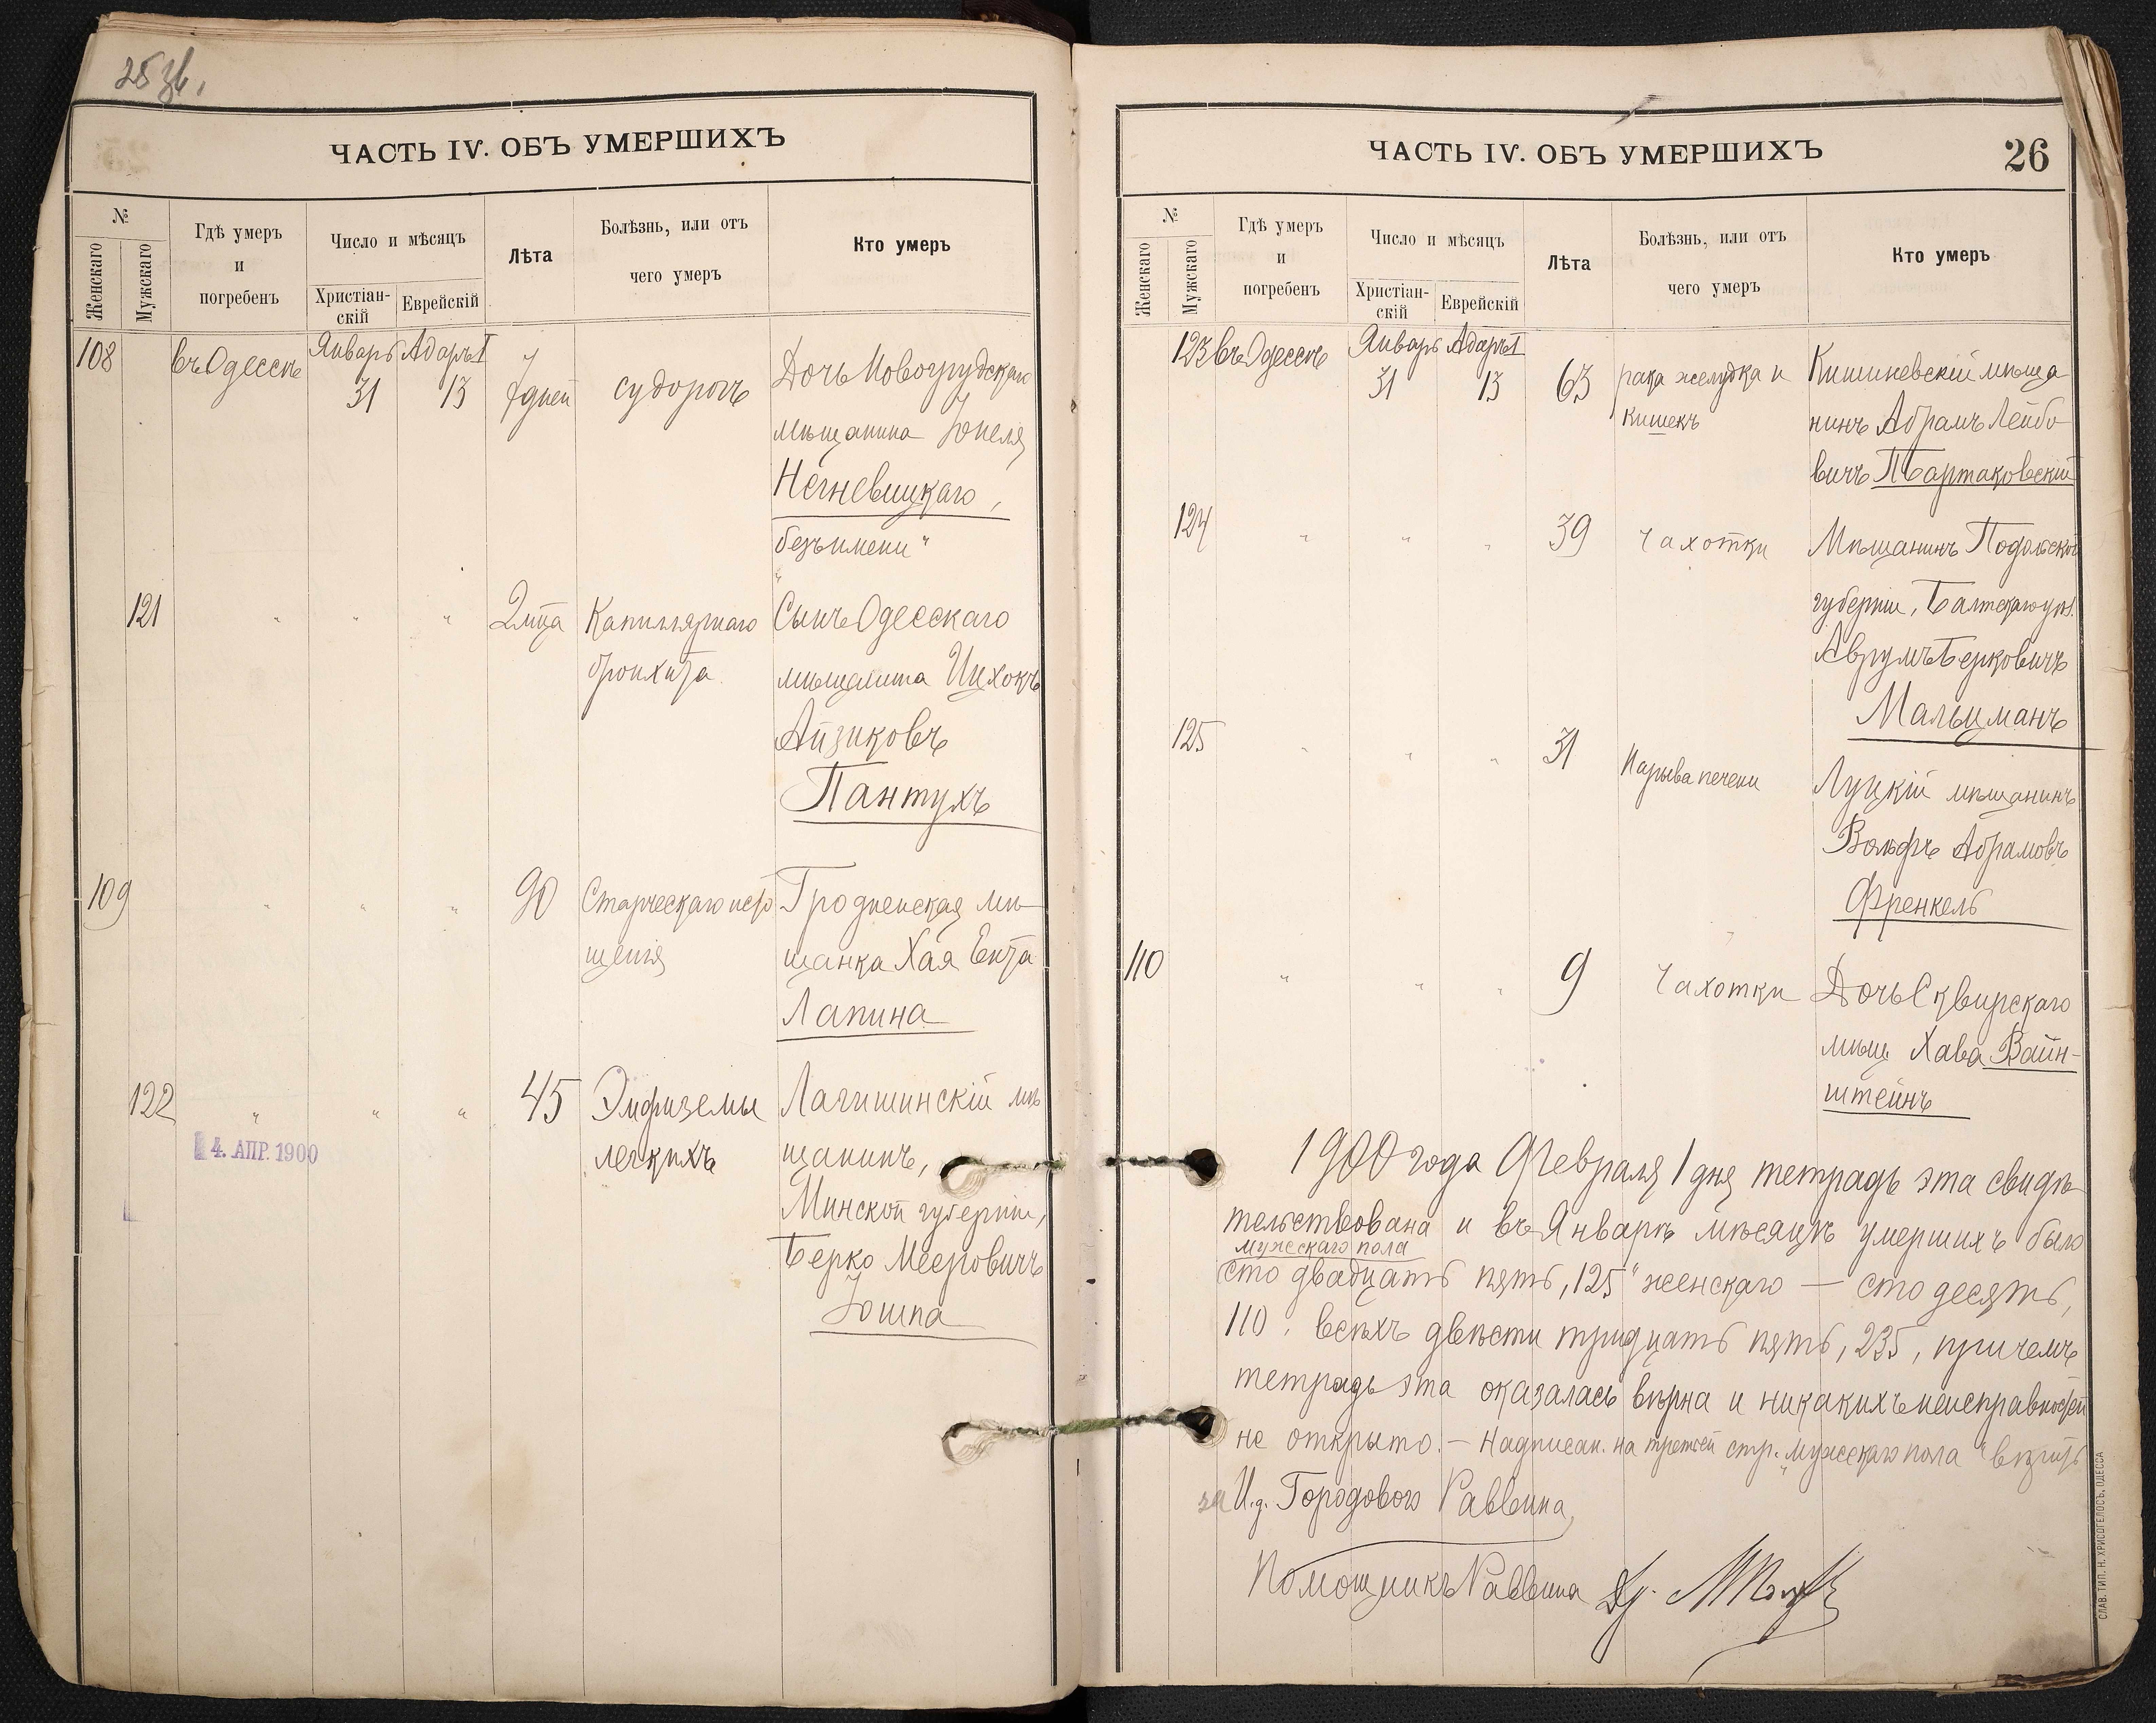 25 зв.
ЧАСТЬ IV. ОБЪ УМЕРШИХЪ
№
Женскаго
Мужскаго
Гдѣ умеръ
и
погребенъ
Число и мѣсяцъ
Христіан-
скій
Еврейскій
Лѣта
Болѣзнь, или отъ
чего умеръ
Кто умеръ
108 въ Одессѣ Январь Адаръ I
31 13 7 дней судорогъ Дочь Новогрудскаго
мѣщанина Іоселя
Негневицкаго,
безъ имени"
121 " " " 2 мца Капиллярнаго Сынъ Одесскаго
бронхита мѣщанина Ицхокъ
Айзиковъ
Пантухъ
109 " " " 90 Старческаго исто Гродненская мѣ-
щенія щанка Хая Ента
Лапина
122 " " " 45 Эмфиземы Лагишинскій мѣ
легкихъ щанинъ,
4. АПР. 1900
Минской губерніи,
Берко Мееровичъ
Юшпа
ЧАСТЬ IV. ОБЪ УМЕРШИХЪ
26
№
Женскаго
Мужскаго
Гдѣ умеръ
и
погребенъ
Число и мѣсяцъ
Христіан-
скій
Еврейскій
Лѣта
Болѣзнь, или отъ
чего умеръ
Кто умеръ
123 въ Одессѣ Январь Адаръ I
31 13 63 рака желудка и Кишиневскій мѣща
кишекъ нинъ Абрамъ Лейбо
вичъ Партаковскій
124 " " " 39 Чахотки Мѣщанинъ Подольской
губерніи, Балтскаго уѣз.
Аврумъ Берковичъ
Мальцманъ
125 " " " 31 Нарыва печени Луцкій мѣщанинъ
Вольфъ Абрамовъ
Френкель
110 " " " 9 Чахотки Дочь Сквирскаго
мѣщ. Хава Вайн-
штейнъ
1900 года Февраля 1 дня тетрадь эта свидѣ-
тельствована и въ Январѣ мѣсяцѣ умершихъ было
мужескаго пола
сто двадцать пять, 125" женскаго — сто десять,
110. всѣхъ двѣсти тридцать пять, 235, причемъ
тетрадь эта оказалась вѣрна и никакихъ неисправностей
не открыто. — Надписан. на третьей стр. "мужескаго пола" вѣрить
за И.д. Городового Раввина,
Помощникъ Раввина Др.
СЛАВ. ТИП. Н. ХРИСОГЕЛОСЪ, ОДЕССА